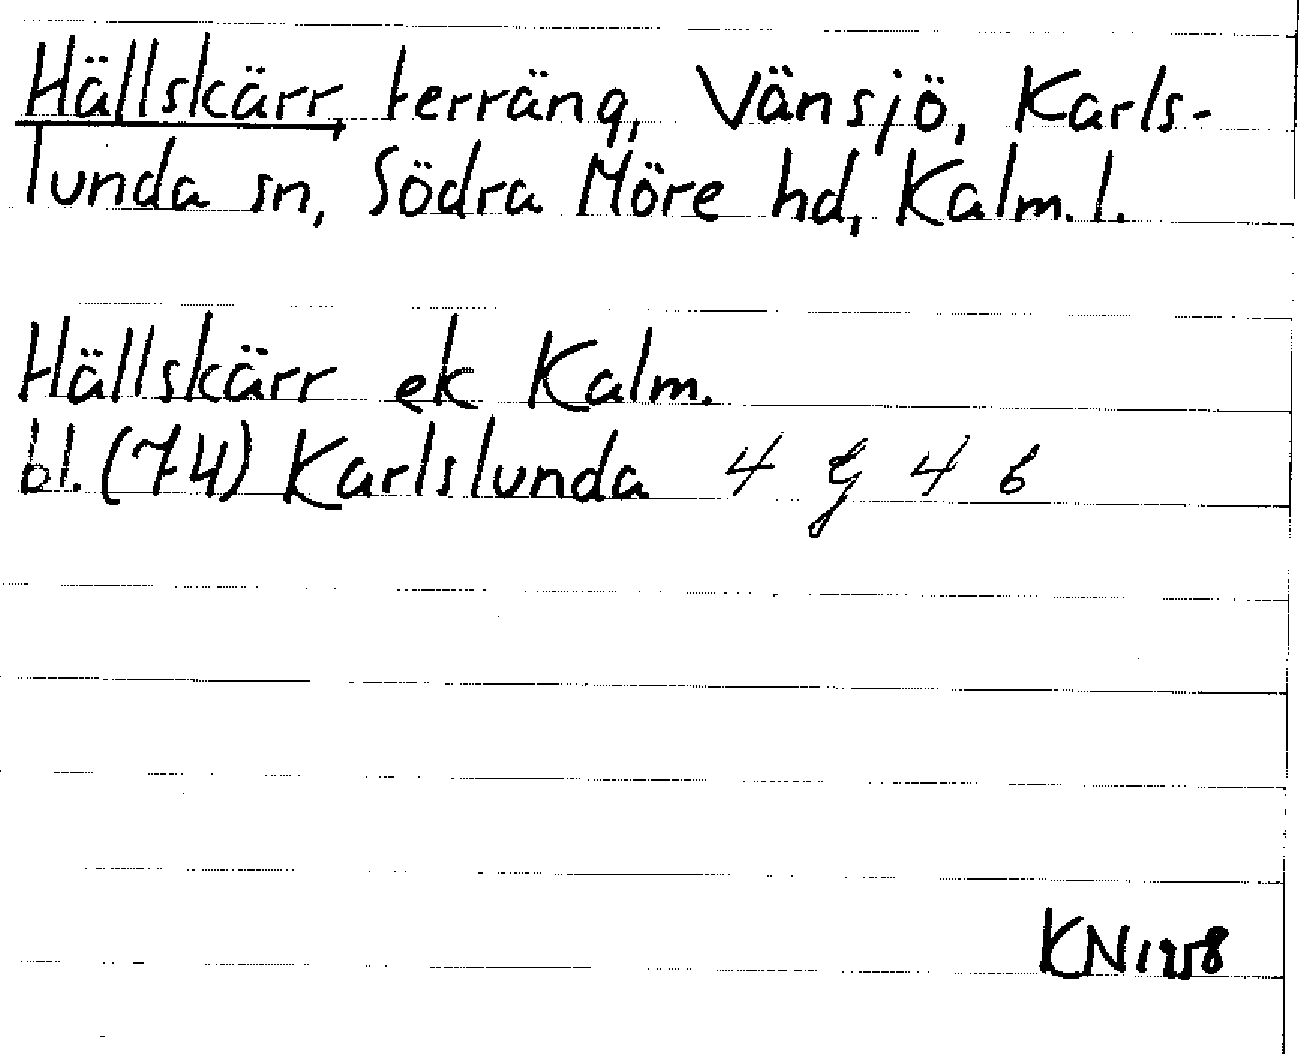 Hällskärr, terräng, Vänsjö, Karls-
lunda sn, Södra Möre hd, Kalm. l.
Hällskärr ek Kalm.
bl. (74) Karlslunda 4 G 4 b